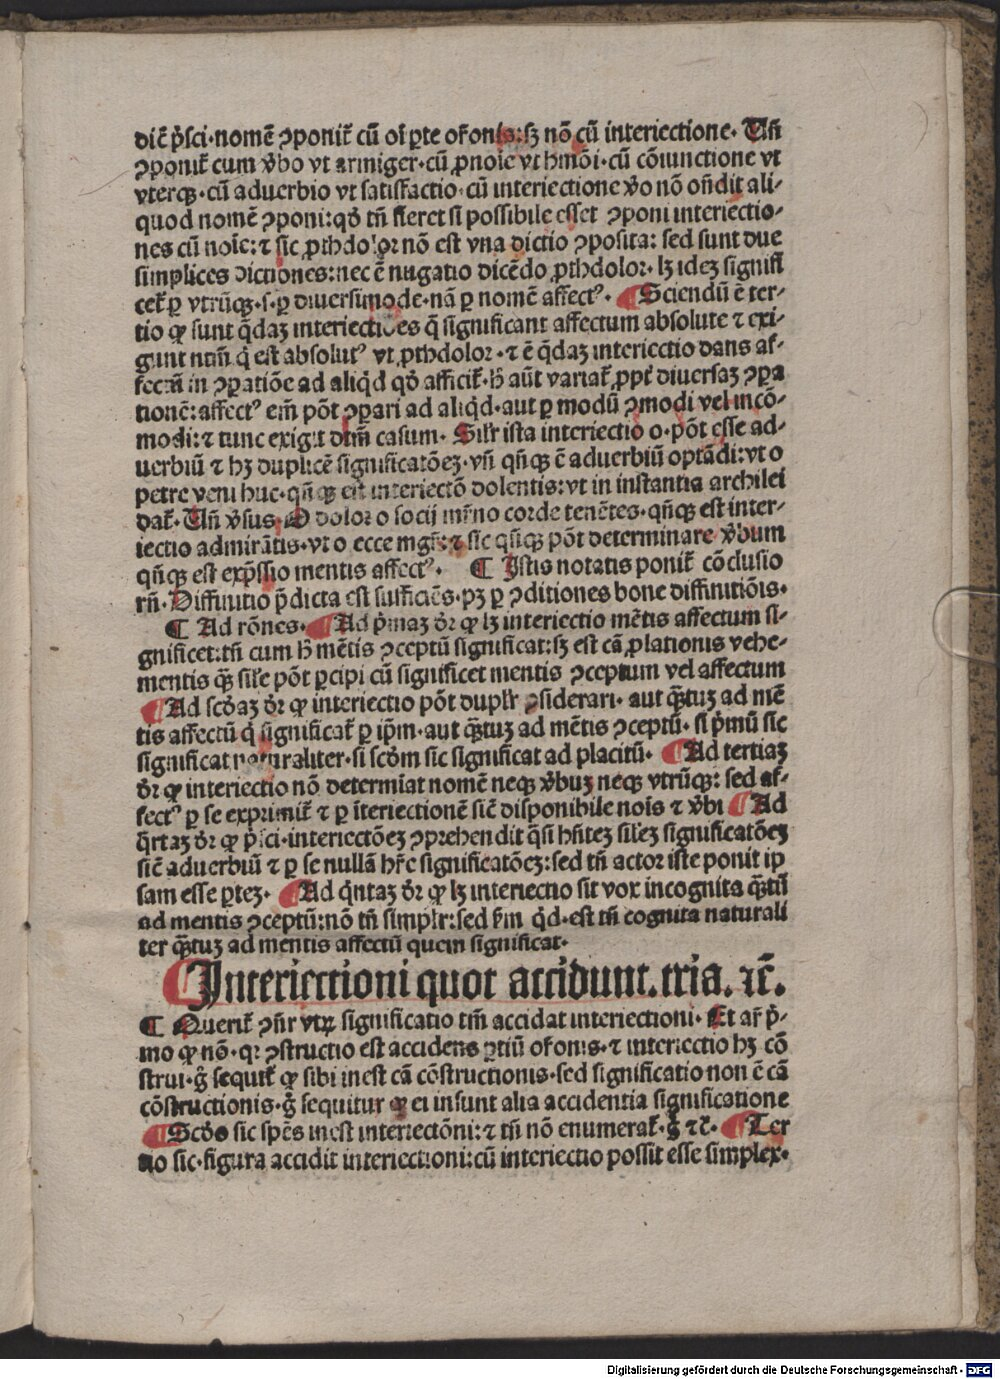 dic̄ p̄sci·nomē ꝯponit̄ cū oī ꝑte or̄onis:sꝫ nō cū interiectione· Un̄
ꝯponit̄ cum v̄bo vt armiger·cū ꝓnoīe vt hmōi·cū cōiunctione vt
vterqꝫ·cū aduerbio vt satisfactio·cū interiectione v̄o nō on̄dit ali-
quod nomē ꝯponi:qd̓ tn̄ fieret si possibile esset ꝯponi interiectio-
nes cū noīe:⁊ sic ꝓthdolor nō est vna dictio ꝯposita: sed sunt due
simplices dictiones:nec ē nugatio dicēdo ꝓthdolor· lꝫ ideꝫ signifi
cet̄ ꝑ vtrūqꝫ·s·ꝑ diuersimode·nā ꝑ nomē affectꝰ· ¶ Sciendū ē ter-
tio ꝙ sunt q̄daꝫ interiectiões q̄ significant affectum absolute ⁊ exi-
gunt ntm̄ q̓ est absolutꝰ vt ꝓthdolor·⁊ ē q̄daꝫ interiectio dans af-
fectū in ꝯꝑatiōe ad aliq̓d qd̓ afficit̄·h̓ aūt variat̄ ꝓpt̓ diuersaꝫ ꝯꝑa
tionē:affectꝰ em̄ pōt ꝯꝑari ad aliq̓d·aut ꝑ modū ꝯmodi vel incō-
modi:⁊ tunc exigit dtm̄ casum· Silr̄ ista interiectio o·pōt esse ad-
uerbiū ⁊ hꝫ duplicē significatōeꝫ·vn̄ qn̄qꝫ ē aduerbiū optādi:vt o
petre veni huc·qn̄qꝫ est interiectō dolentis:vt in instantia archilei
dat̄·Un̄ v̓sus·O dolor o socij mr̄no corde tenētes·qn̄qꝫ est inter-
iectio admirātis·vt o ecce mgr̄:⁊ sic qn̄qꝫ pōt determinare v̓bum
qn̄qꝫ est exp̄ssio mentis affectꝰ· ¶ Istis notatis ponit̄ cōclusio
rn̄·Diffinitio p̄dicta est sufficiēs·pꝫ ꝑ ꝯditiones bone diffinitiōis·
¶ Ad rōnes· ¶ Ad p̓maꝫ dr̄ ꝙ lꝫ interiectio mētis affectum si-
gnificet:tn̄ cum h̓ mētis ꝯceptū significat:sꝫ est cā ꝓlationis vehe-
mentis qꝫ sil̓e pōt ꝑcipi cū significet mentis ꝯceptum vel affectum
¶ Ad scd̓aꝫ dr̄ ꝙ interiectio pōt duplr̄ ꝯsiderari· aut qꝫtuꝫ ad mē
tis affectū q̓ significat̄ ꝑ ip̄m·aut qꝫtuꝫ ad mētis ꝯceptū· si p̓mū sic
significat naturaliter·si scd̓m sic significat ad placitū· ¶ Ad tertiaꝫ
dr̄ ꝙ interiectio nō determīat nomē neqꝫ v̓buꝫ neqꝫ vtrūqꝫ: sed af-
fectꝰ ꝑ se exprimit̄ ⁊ ꝑ īteriectionē sic̄ disponibile nois̄ ⁊ v̓bi ¶ Ad
q̓rtaꝫ dr̄ ꝙ p̓sci·interiectōeꝫ ꝯprehendit q̓si hn̄teꝫ sil̓eꝫ significatōeꝫ
sic̄ aduerbiū ⁊ ꝑ se nullā hr̄e significatōeꝫ:sed tn̄ actor iste ponit ip
sam esse ꝑteꝫ· ¶ Ad q̓ntaꝫ dr̄ ꝙ lꝫ interiectio sit vox incognita qꝫtū
ad mentis ꝯceptū:nō tn̄ simplr̄:sed ẜm q̓d·est tn̄ cognita naturali
ter qꝫtuꝫ ad mentis affectū quem significat·
¶ Interiectioni quot accidunt.tria.⁊c̄.
¶ Querit̄ ꝯn̄r vtꝝ significatio tm̄ accidat interiectioni· Et ar̄ p̓-
mo ꝙ nō·qꝛ ꝯstructio est accidens ꝑtiū or̄onis·⁊ interiectio hꝫ cō
strui·g̓ sequit̄ ꝙ sibi inest cā cōstructionis·sed significatio non ē cā
cōstructionis·g̓ sequitur ꝙ ei insunt alia accidentia significatione
¶ Scd̓o sic spēs inest interiectōni:⁊ tn̄ nō enumerat̄·g̓ ⁊c̄· ¶ Ter
tio sic·figura accidit interiectioni:cū interiectio possit esse simplex·
Digitalisierung gefördert durch die Deutsche Forschungsgemeinschaft - DFG